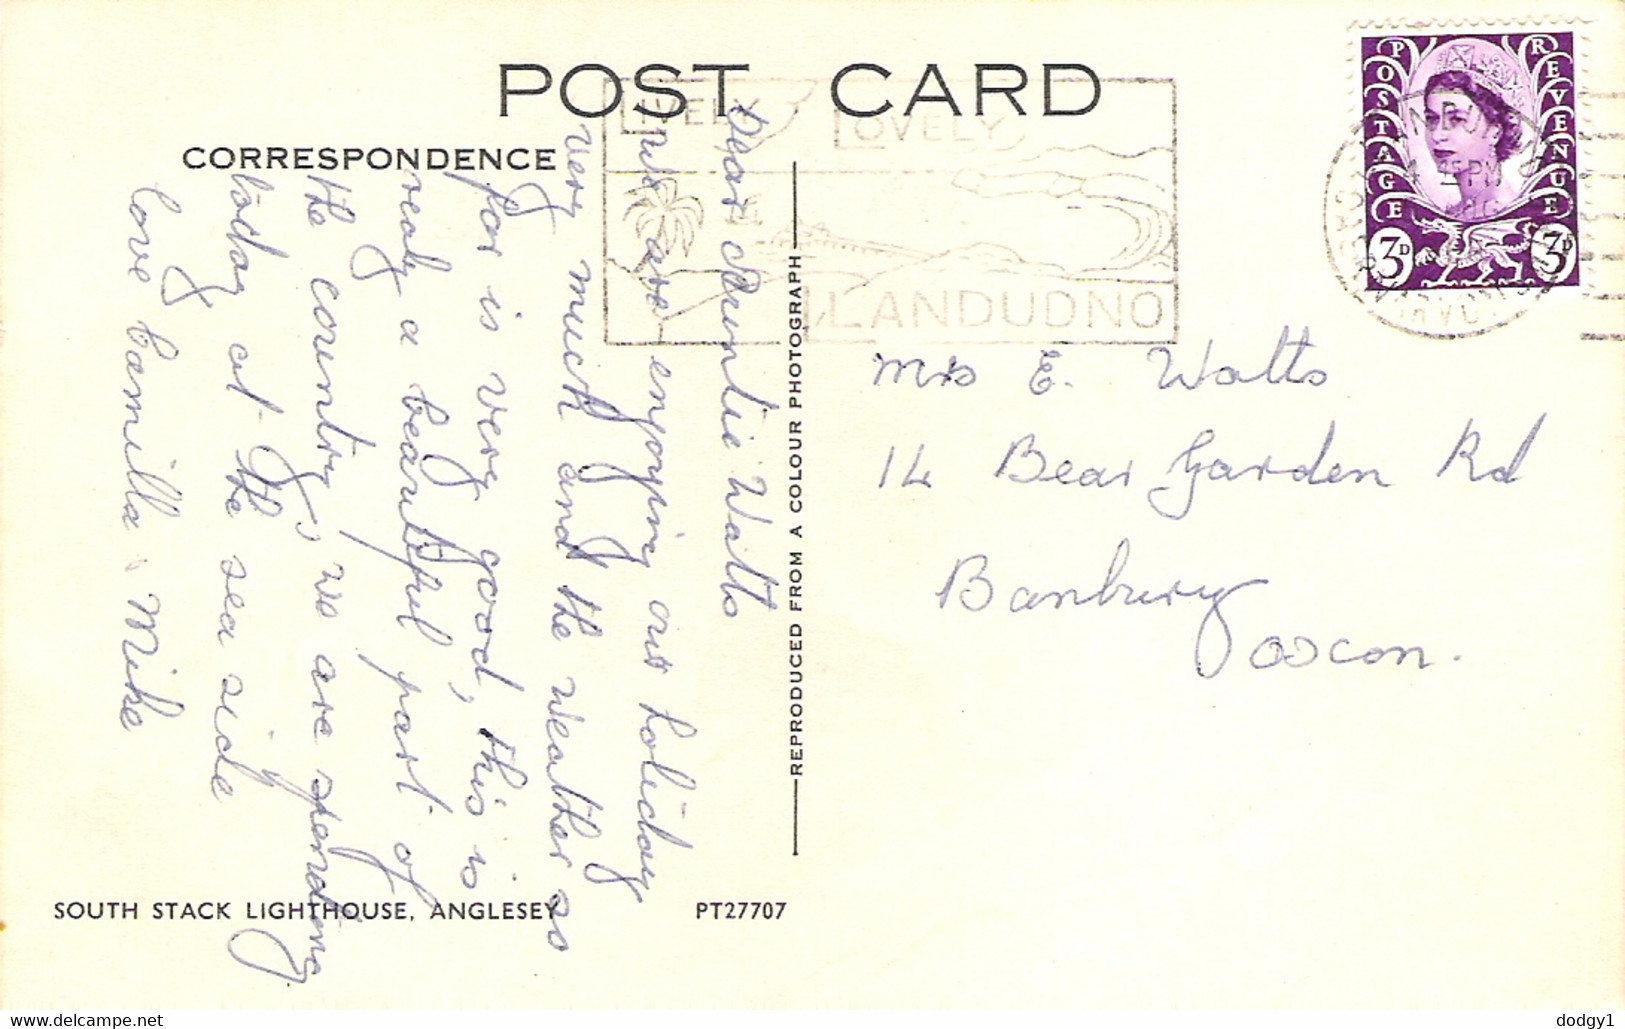 POST CARD
CORRESPONDENCE
Dear Auntie Watts
We are enjoying our holiday
very much and the weather so
far is very good, this is
realy a beautiful part of
the country, we are spending
today at the sea side
love Camilla Mike
SOUTH STACK LIGHTHOUSE, ANGLESEY
PT27707
REPRODUCED FROM A COLOUR PHOTOGRAPH
LIVELY
LOVELY
LLANDUDNO
POSTAGE
REVENUE
3D
3D
PM
CAERNARVONS
Mrs E. Watts
14 Bear Garden Rd
Banbury
Oxcon.
dodgy1